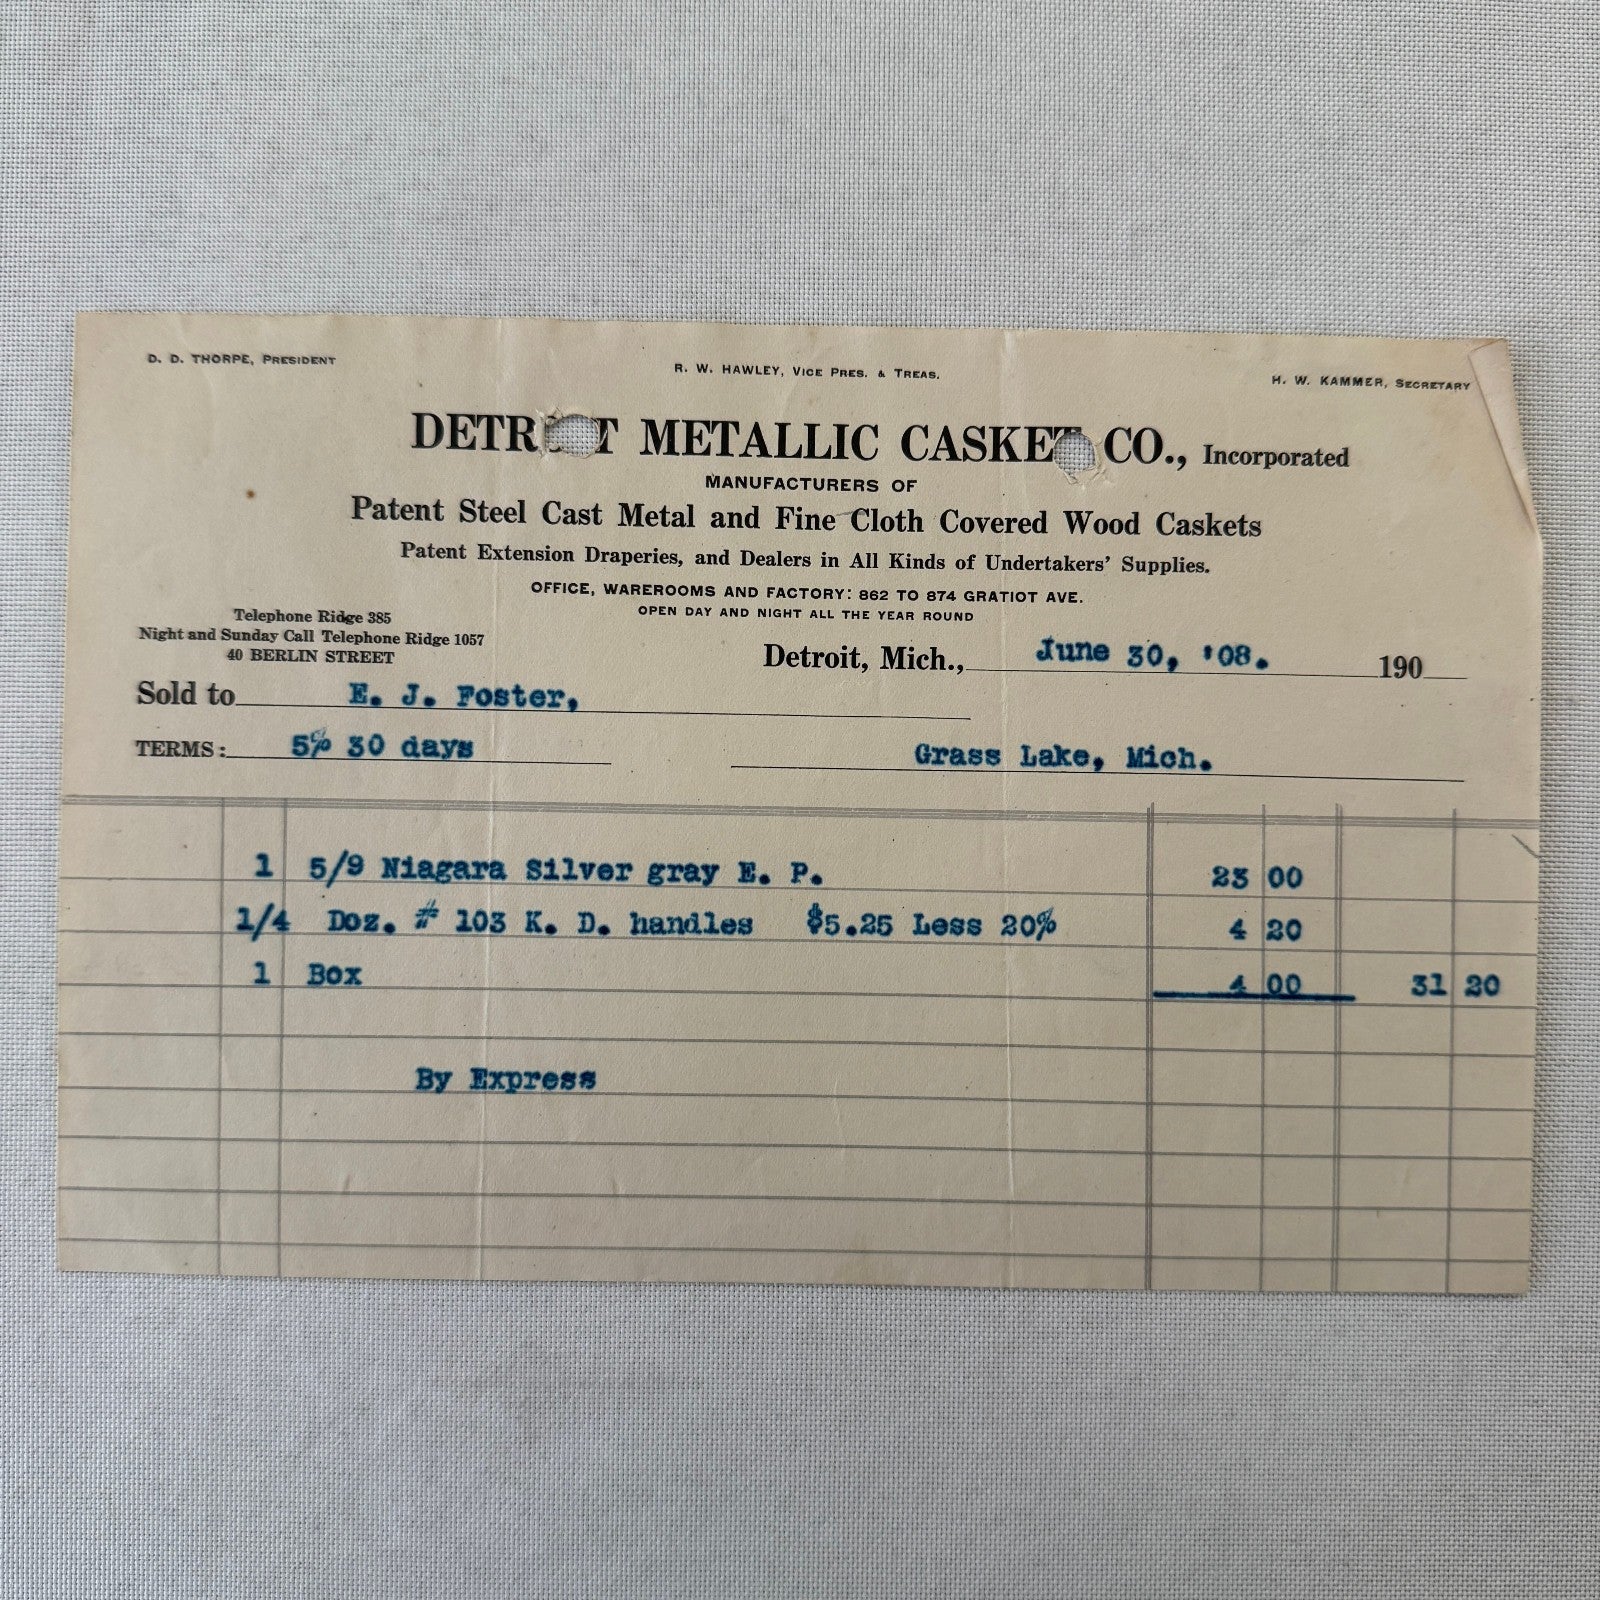 D. D. THORPE, PRESIDENT
R. W. HAWLEY, VICE PRES. & TREAS.
H. W. KAMMER, SECRETARY
DETROIT METALLIC CASKET CO., Incorporated
MANUFACTURERS OF
Patent Steel Cast Metal and Fine Cloth Covered Wood Caskets
Patent Extension Draperies, and Dealers in All Kinds of Undertakers' Supplies.
OFFICE, WAREROOMS AND FACTORY: 862 TO 874 GRATIOT AVE.
OPEN DAY AND NIGHT ALL THE YEAR ROUND
Telephone Ridge 385
Night and Sunday Call Telephone Ridge 1057
40 BERLIN STREET
Detroit, Mich., June 30, '08. 190
Sold to E. J. Foster,
TERMS: 5% 30 days Grass Lake, Mich.
1 5/9 Niagara Silver gray E. P. 23 00
1/4 Doz. # 103 K. D. handles $5.25 Less 20% 4 20
1 Box 4 00 31 20
By Express